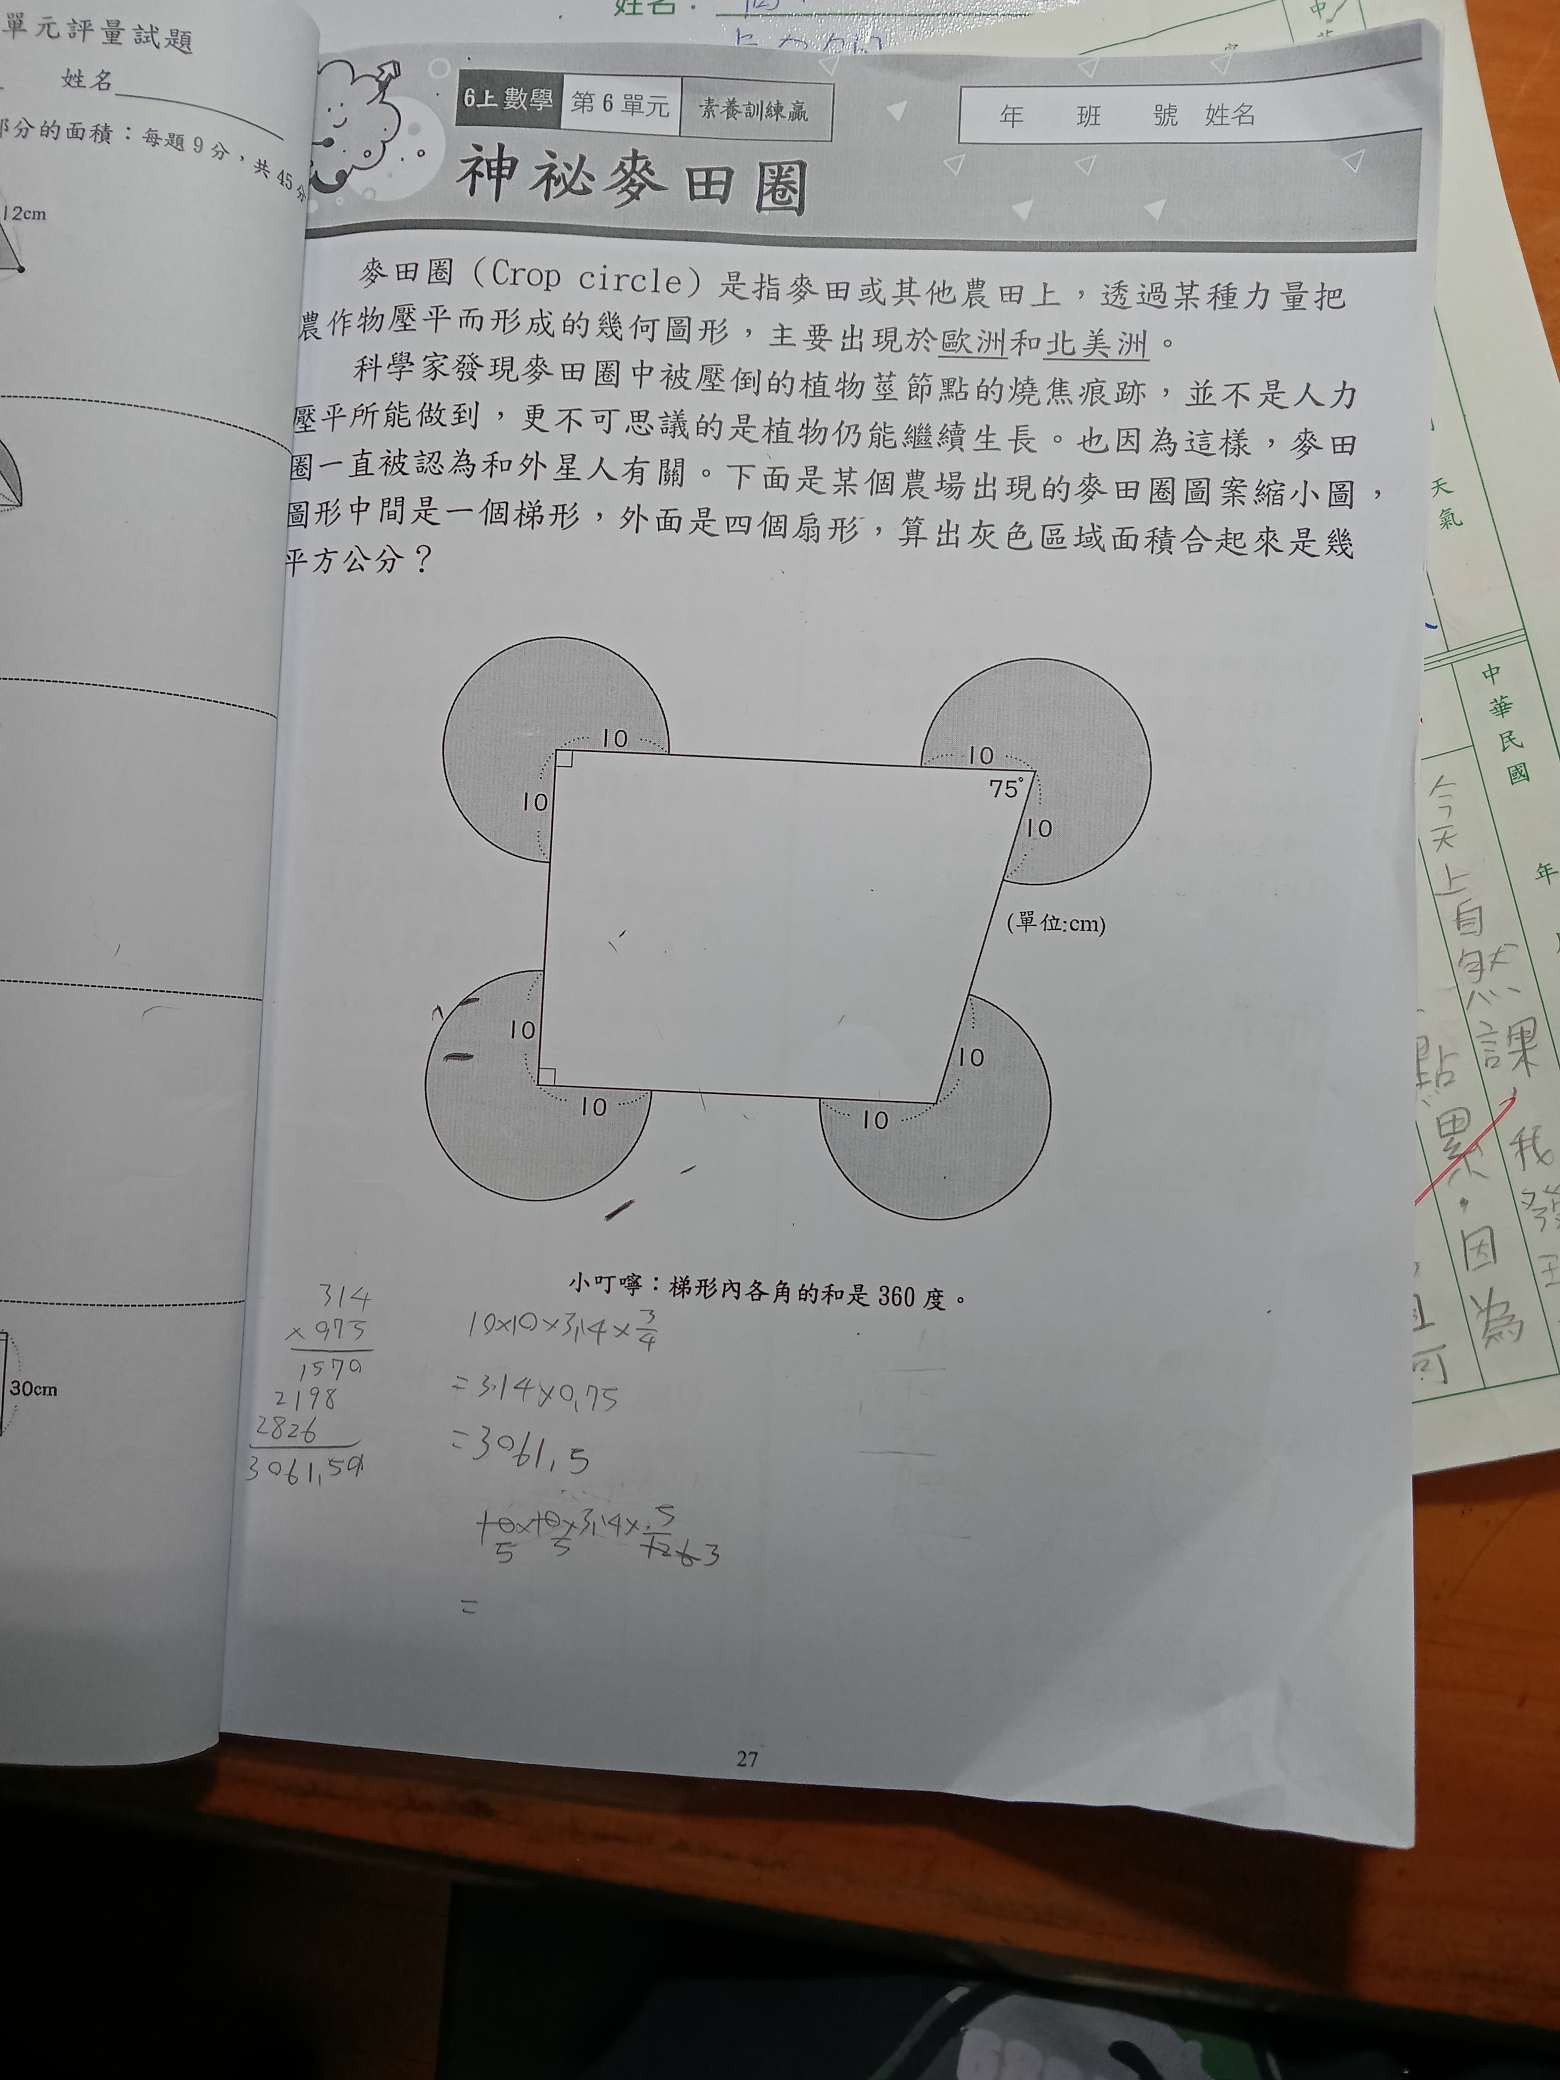 單元評量試題
姓名
部分的面積：每題9分，共45分
12cm
30cm
姓名：
6上數學 第6單元 素養訓練贏
年 班 號 姓名
神祕麥田圈
麥田圈（Crop circle）是指麥田或其他農田上，透過某種力量把
農作物壓平而形成的幾何圖形，主要出現於歐洲和北美洲。
科學家發現麥田圈中被壓倒的植物莖節點的燒焦痕跡，並不是人力
壓平所能做到，更不可思議的是植物仍能繼續生長。也因為這樣，麥田
圈一直被認為和外星人有關。下面是某個農場出現的麥田圈圖案縮小圖，
圖形中間是一個梯形，外面是四個扇形，算出灰色區域面積合起來是幾
平方公分？
10
10
10
75°
10
(單位:cm)
10
10
10
10
小叮嚀：梯形內各角的和是360度。
314
×975
1570
2198
2826
3061,50
10×10×3,14×3/4
=3.14×0,75
=3061,5
10×10×3,14×5/12 6 3
5 5
=
27
天氣
中華民國
年
今天上自然課，我發
點累，因為
可